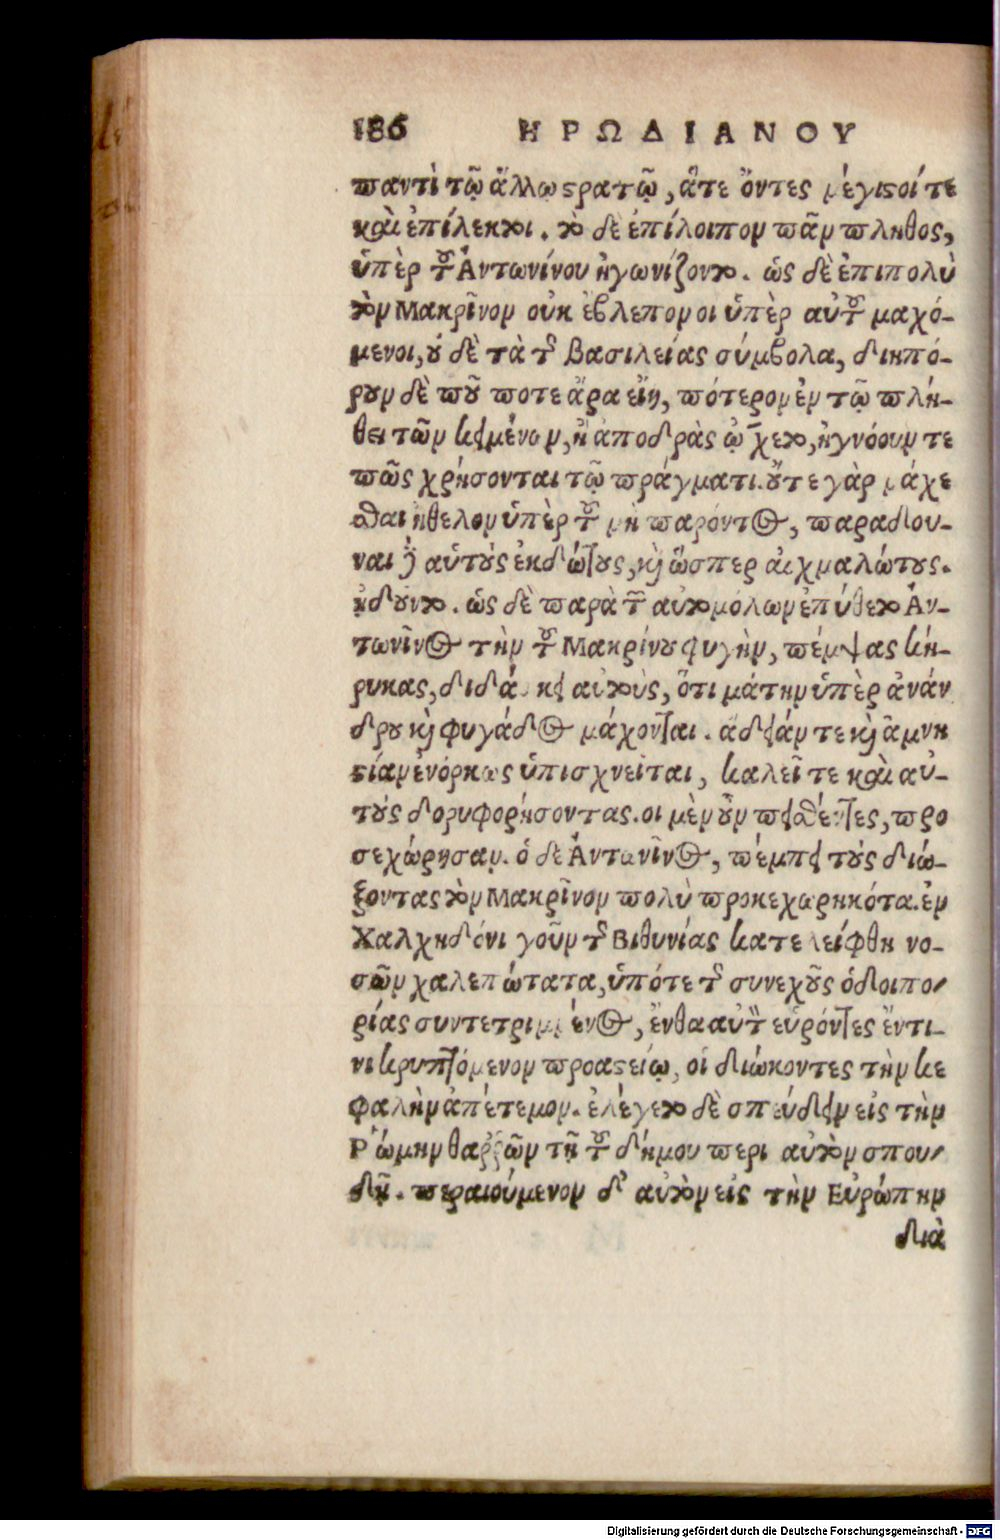 186 ΗΡΩΔΙΑΝΟΥ
παντὶ τῷ ἄλλῳ στρατῷ, ἅτε ὄντες μέγιστοί τε
καὶ ἐπίλεκτοι. τὸ δὲ ἐπίλοιπον πᾶν πλῆθος,
ὑπὲρ τοῦ Ἀντωνίνου ἠγωνίζοντο. ὡς δὲ ἐπιπολὺ
τὸν Μακρῖνον οὐκ ἔβλεπον οἱ ὑπὲρ αὐτοῦ μαχό-
μενοι, οὐ δὲ τὰ τῆς βασιλείας σύμβολα, διηπό-
ρουν δὲ ποῦ ποτε ἄρα εἴη, πότερον ἐν τῷ πλή-
θει τῶν κειμένων, ἢ ἀποδρὰς ᾤχετο, ἠγνόουν τε
πῶς χρήσονται τῷ πράγματι. οὔτε γὰρ μάχε
σθαι ἤθελον ὑπὲρ τοῦ μὴ παρόντος, παραδου-
ναι δὲ αὑτοὺς ἐκδώτους, καὶ ὥσπερ αἰχμαλώτους.
ᾐδοῦντο. ὡς δὲ παρὰ τῶν αὐτομόλων ἐπύθετο Ἀν-
τωνῖνος τὴν τοῦ Μακρίνου φυγὴν, πέμψας κή-
ρυκας, διδάσκει αὐτοὺς, ὅτι μάτην ὑπὲρ ἀνάν
δρου καὶ φυγάδος μάχονται. ἄδειάν τε καὶ ἀμνη
στίαν ἐνόρκως ὑπισχνεῖται, καλεῖ τε καὶ αὐ-
τοὺς δορυφορήσοντας. οἱ μὲν οὖν πεισθέντες, προ
σεχώρησαν. ὁ δὲ Ἀντωνῖνος, πέμπει τοὺς διώ-
ξοντας τὸν Μακρῖνον πολὺ προκεχωρηκότα. ἐν
Χαλκηδόνι γοῦν τῆς Βιθυνίας κατελείφθη νο-
σῶν χαλεπώτατα, ὑπότε τῆς συνεχοῦς ὁδοιπο-
ρίας συντετριμμένος, ἔνθα αὐτὸν εὑρόντες ἔντι-
νι κρυπτόμενον προαστείῳ, οἱ διώκοντες τὴν κε
φαλὴν ἀπέτεμον. ἐλέγετο δὲ σπεύδειν εἰς τὴν
Ῥώμην θαῤῥῶν τῇ τοῦ δήμου περι αὐτὸν σπου-
δῇ. περαιούμενον δ' αὐτὸν εἰς τὴν Εὐρώπην
διὰ
Digitalisierung gefördert durch die Deutsche Forschungsgemeinschaft - DFG